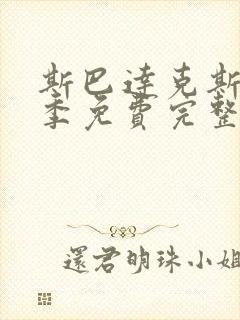 斯巴达克斯
季免費完整
還君明珠小姐